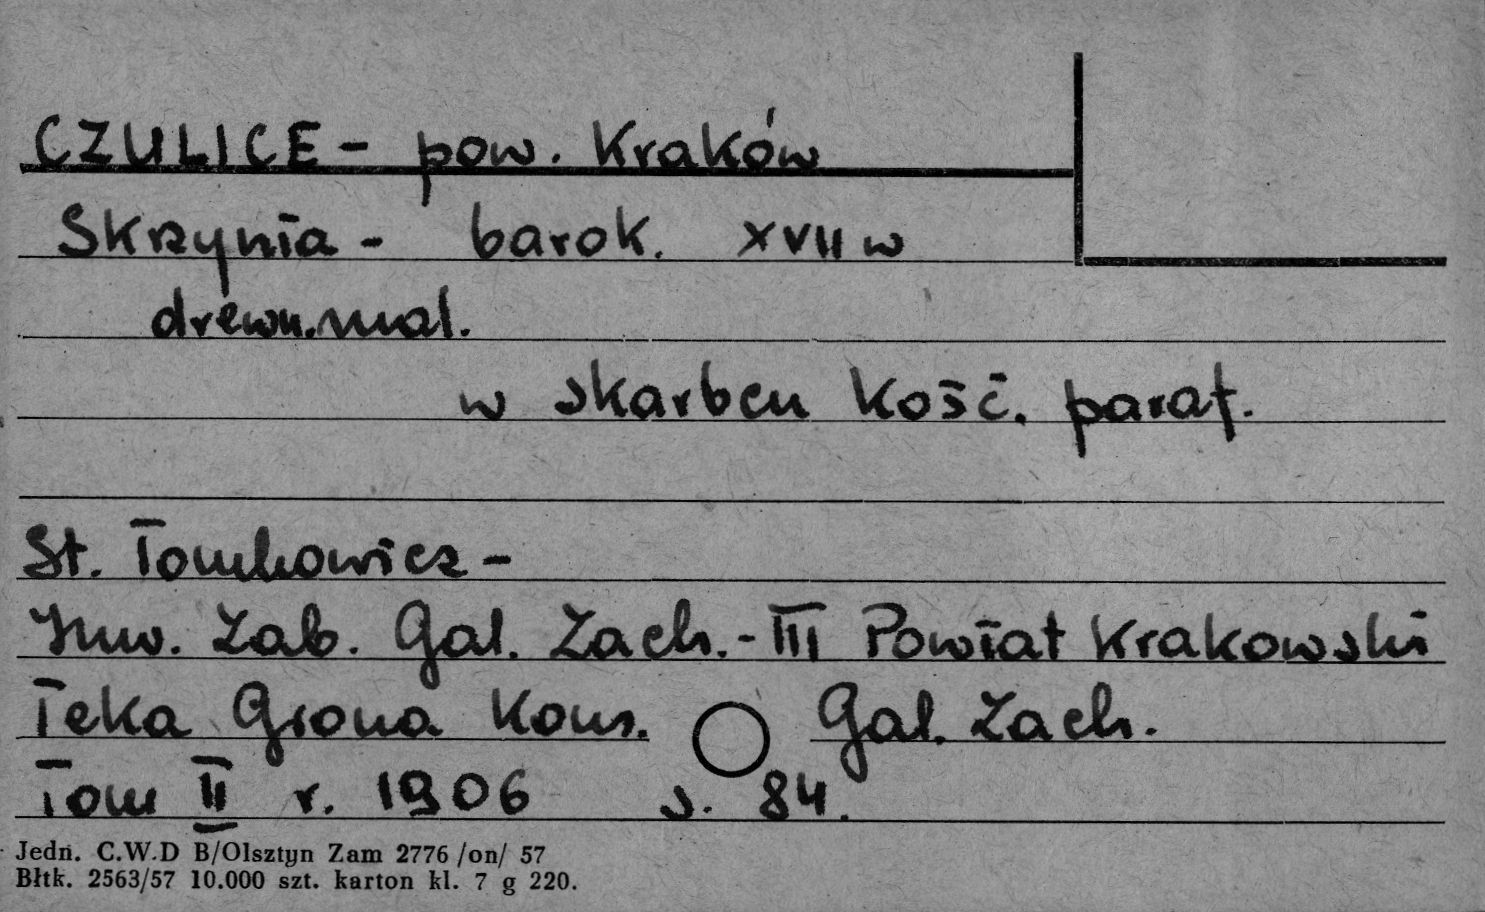 CZULICE - pow. Kraków
Skrzynia - barok. XVII w
drewn. mal.
w skarbcu kość. paraf.
St. Tomkowicz -
Inw. Zab. Gal. Zach. - III Powiat Krakowski
Teka Grona Kons. Gal. Zach.
Tom II r. 1906 s. 84.
Jedn. C.W.D B/Olsztyn Zam 2776 /on/ 57
Błtk. 2563/57 10.000 szt. karton kl. 7 g 220.